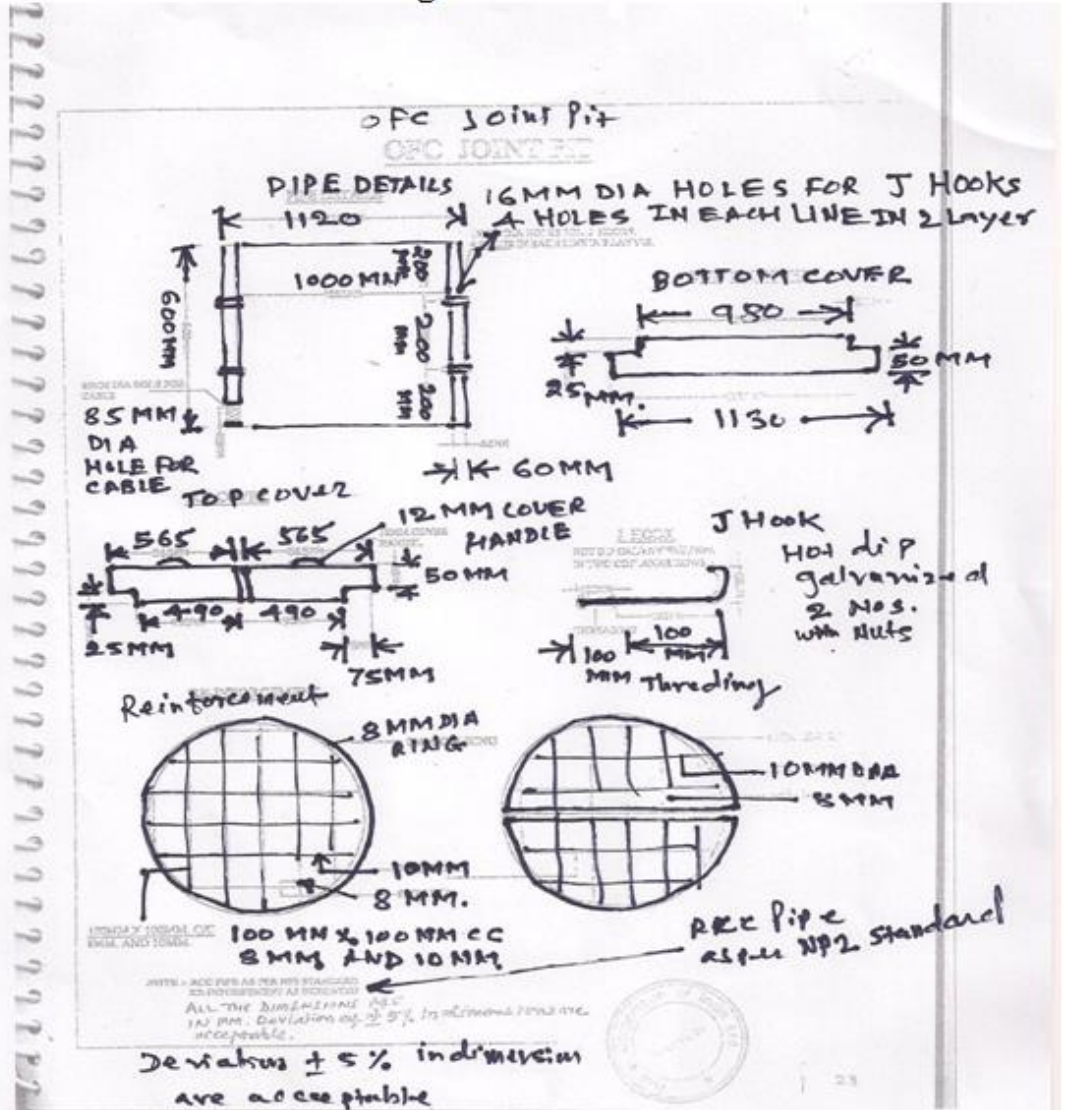 OFC Joint Pit
OFC JOINT PIT
PIPE DETAILS
1120
16MM DIA HOLES FOR J HOOKS
4 HOLES IN EACH LINE IN 2 Layer
1000 MM
200 MM
200 MM
200 MM
600MM
85 MM
DIA
HOLE FOR
CABLE
60MM
BOTTOM COVER
980
50 MM
25 MM.
1130
TOP COVER
565
565
12 MM COVER
HANDLE
50MM
490
490
25MM
75MM
J HOOK
J Hook
Hot dip
galvanized
2 Nos.
with Nuts
100
MM
100
MM
Threding
Reinforcement
8 MM DIA
RING
10MM
8 MM.
10MM DIA
8MM
100 MM X 100 MM CC
8MM AND 10 MM
RCC Pipe
as per NP2 Standard
ALL THE DIMENSIONS ARE
IN MM. Deviation of ± 5% in dimensions are
acceptable.
Deviation ± 5% in dimersion
are acceptable
23